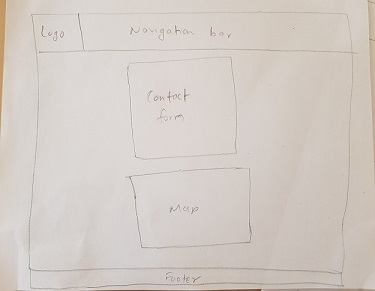 Logo
Navigation bar
Contact
form
Map
Footer